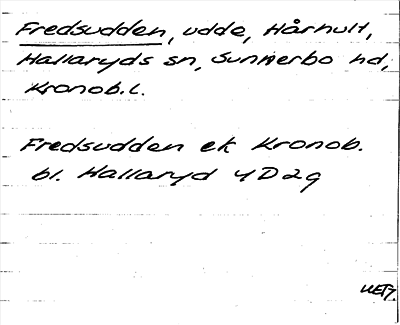 Fredsudden, udde, Hårhult,
Hallaryds sn, Sunnerbo hd,
Kronob.l.
Fredsudden ek Kronob.
bl. Hallaryd 4D2g